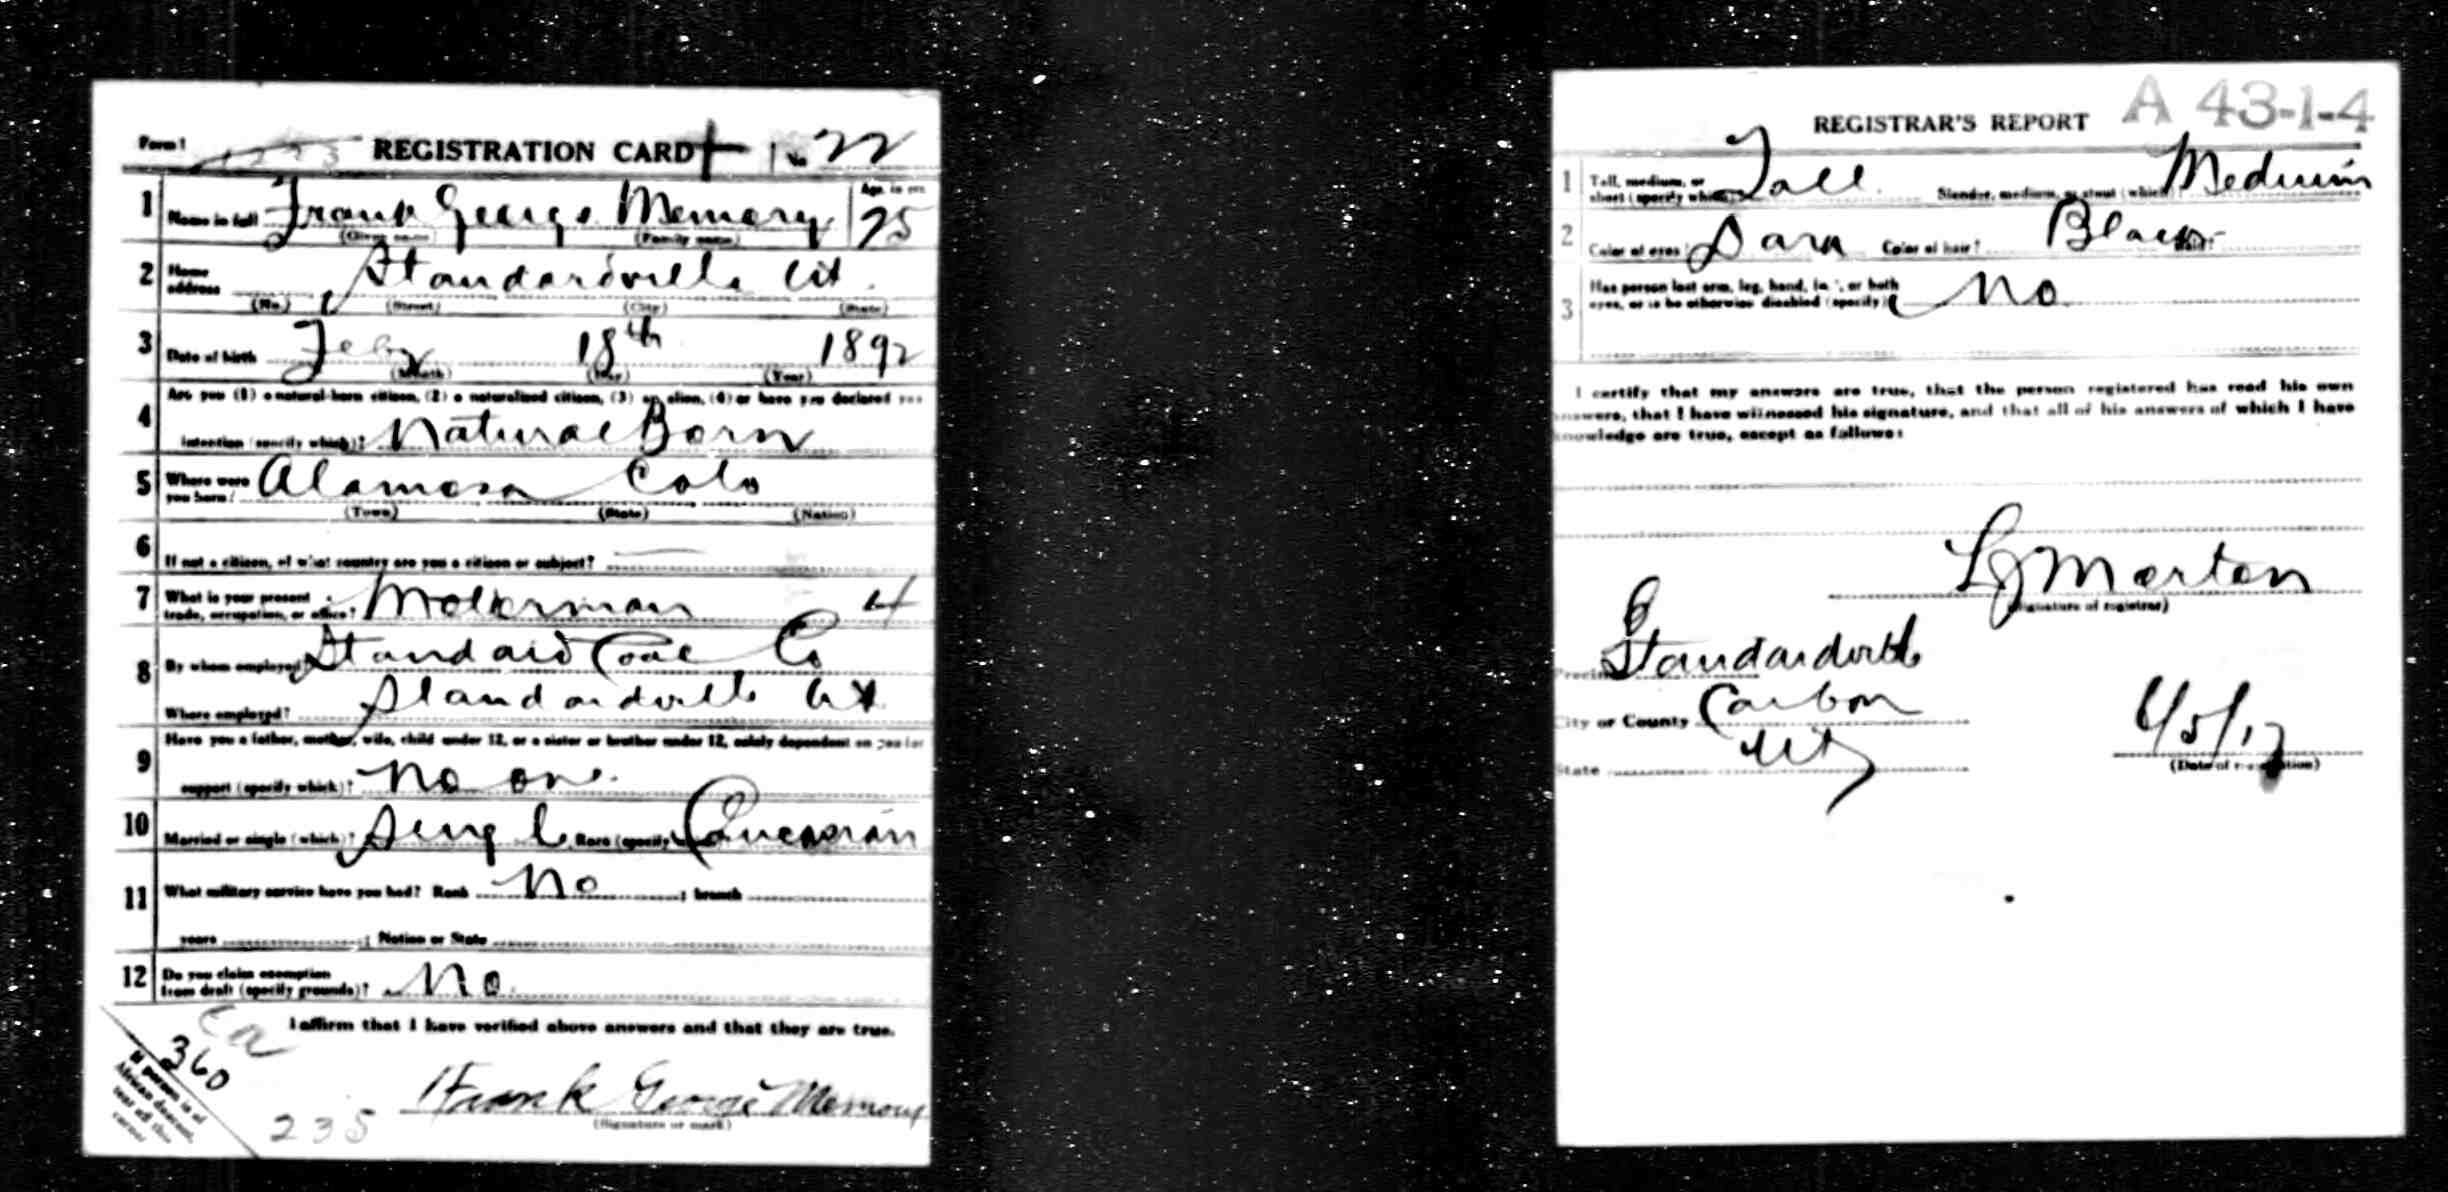 Form 1 1223 REGISTRATION CARD No 22
1 Name in full Frank George Memory Age, in yrs 25
(Given name) (Family name)
2 Home address Standardville Ut.
(No.) (Street) (City) (State)
3 Date of birth Feby 18th 1892
(Month) (Day) (Year)
4 Are you (1) a natural-born citizen, (2) a naturalized citizen, (3) an alien, (4) or have you declared your
intention (specify which)? Natural Born
5 Where were you born? Alamosa Colo
(Town) (State) (Nation)
6 If not a citizen, of what country are you a citizen or subject?
7 What is your present trade, occupation, or office? Motorman 4
8 By whom employed? Standard Coal Co
Where employed? Standardville Ut
9 Have you a father, mother, wife, child under 12, or a sister or brother under 12, solely dependent on you for
support (specify which)? No one.
10 Married or single (which)? Single Race (specify which)? Caucasian
11 What military service have you had? Rank No ; branch
years ; Nation or State
12 Do you claim exemption from draft (specify grounds)? No.
I affirm that I have verified above answers and that they are true.
360
If person is of
African descent,
tear off this
corner
235
Frank George Memory
(Signature or mark)
REGISTRAR'S REPORT A 43-1-4
1 Tall, medium, or short (specify which)? Tall. Slender, medium, or stout (which)? Medium
2 Color of eyes? Dark Color of hair? Black Bald?
3 Has person lost arm, leg, hand, foot, or both
eyes, or is he otherwise disabled (specify)? No
I certify that my answers are true, that the person registered has read his own
answers, that I have witnessed his signature, and that all of his answers of which I have
knowledge are true, except as follows:
L J Morton
(Signature of registrar)
Precinct Standardville
City or County Carbon
State Ut
6/5/17
(Date of registration)